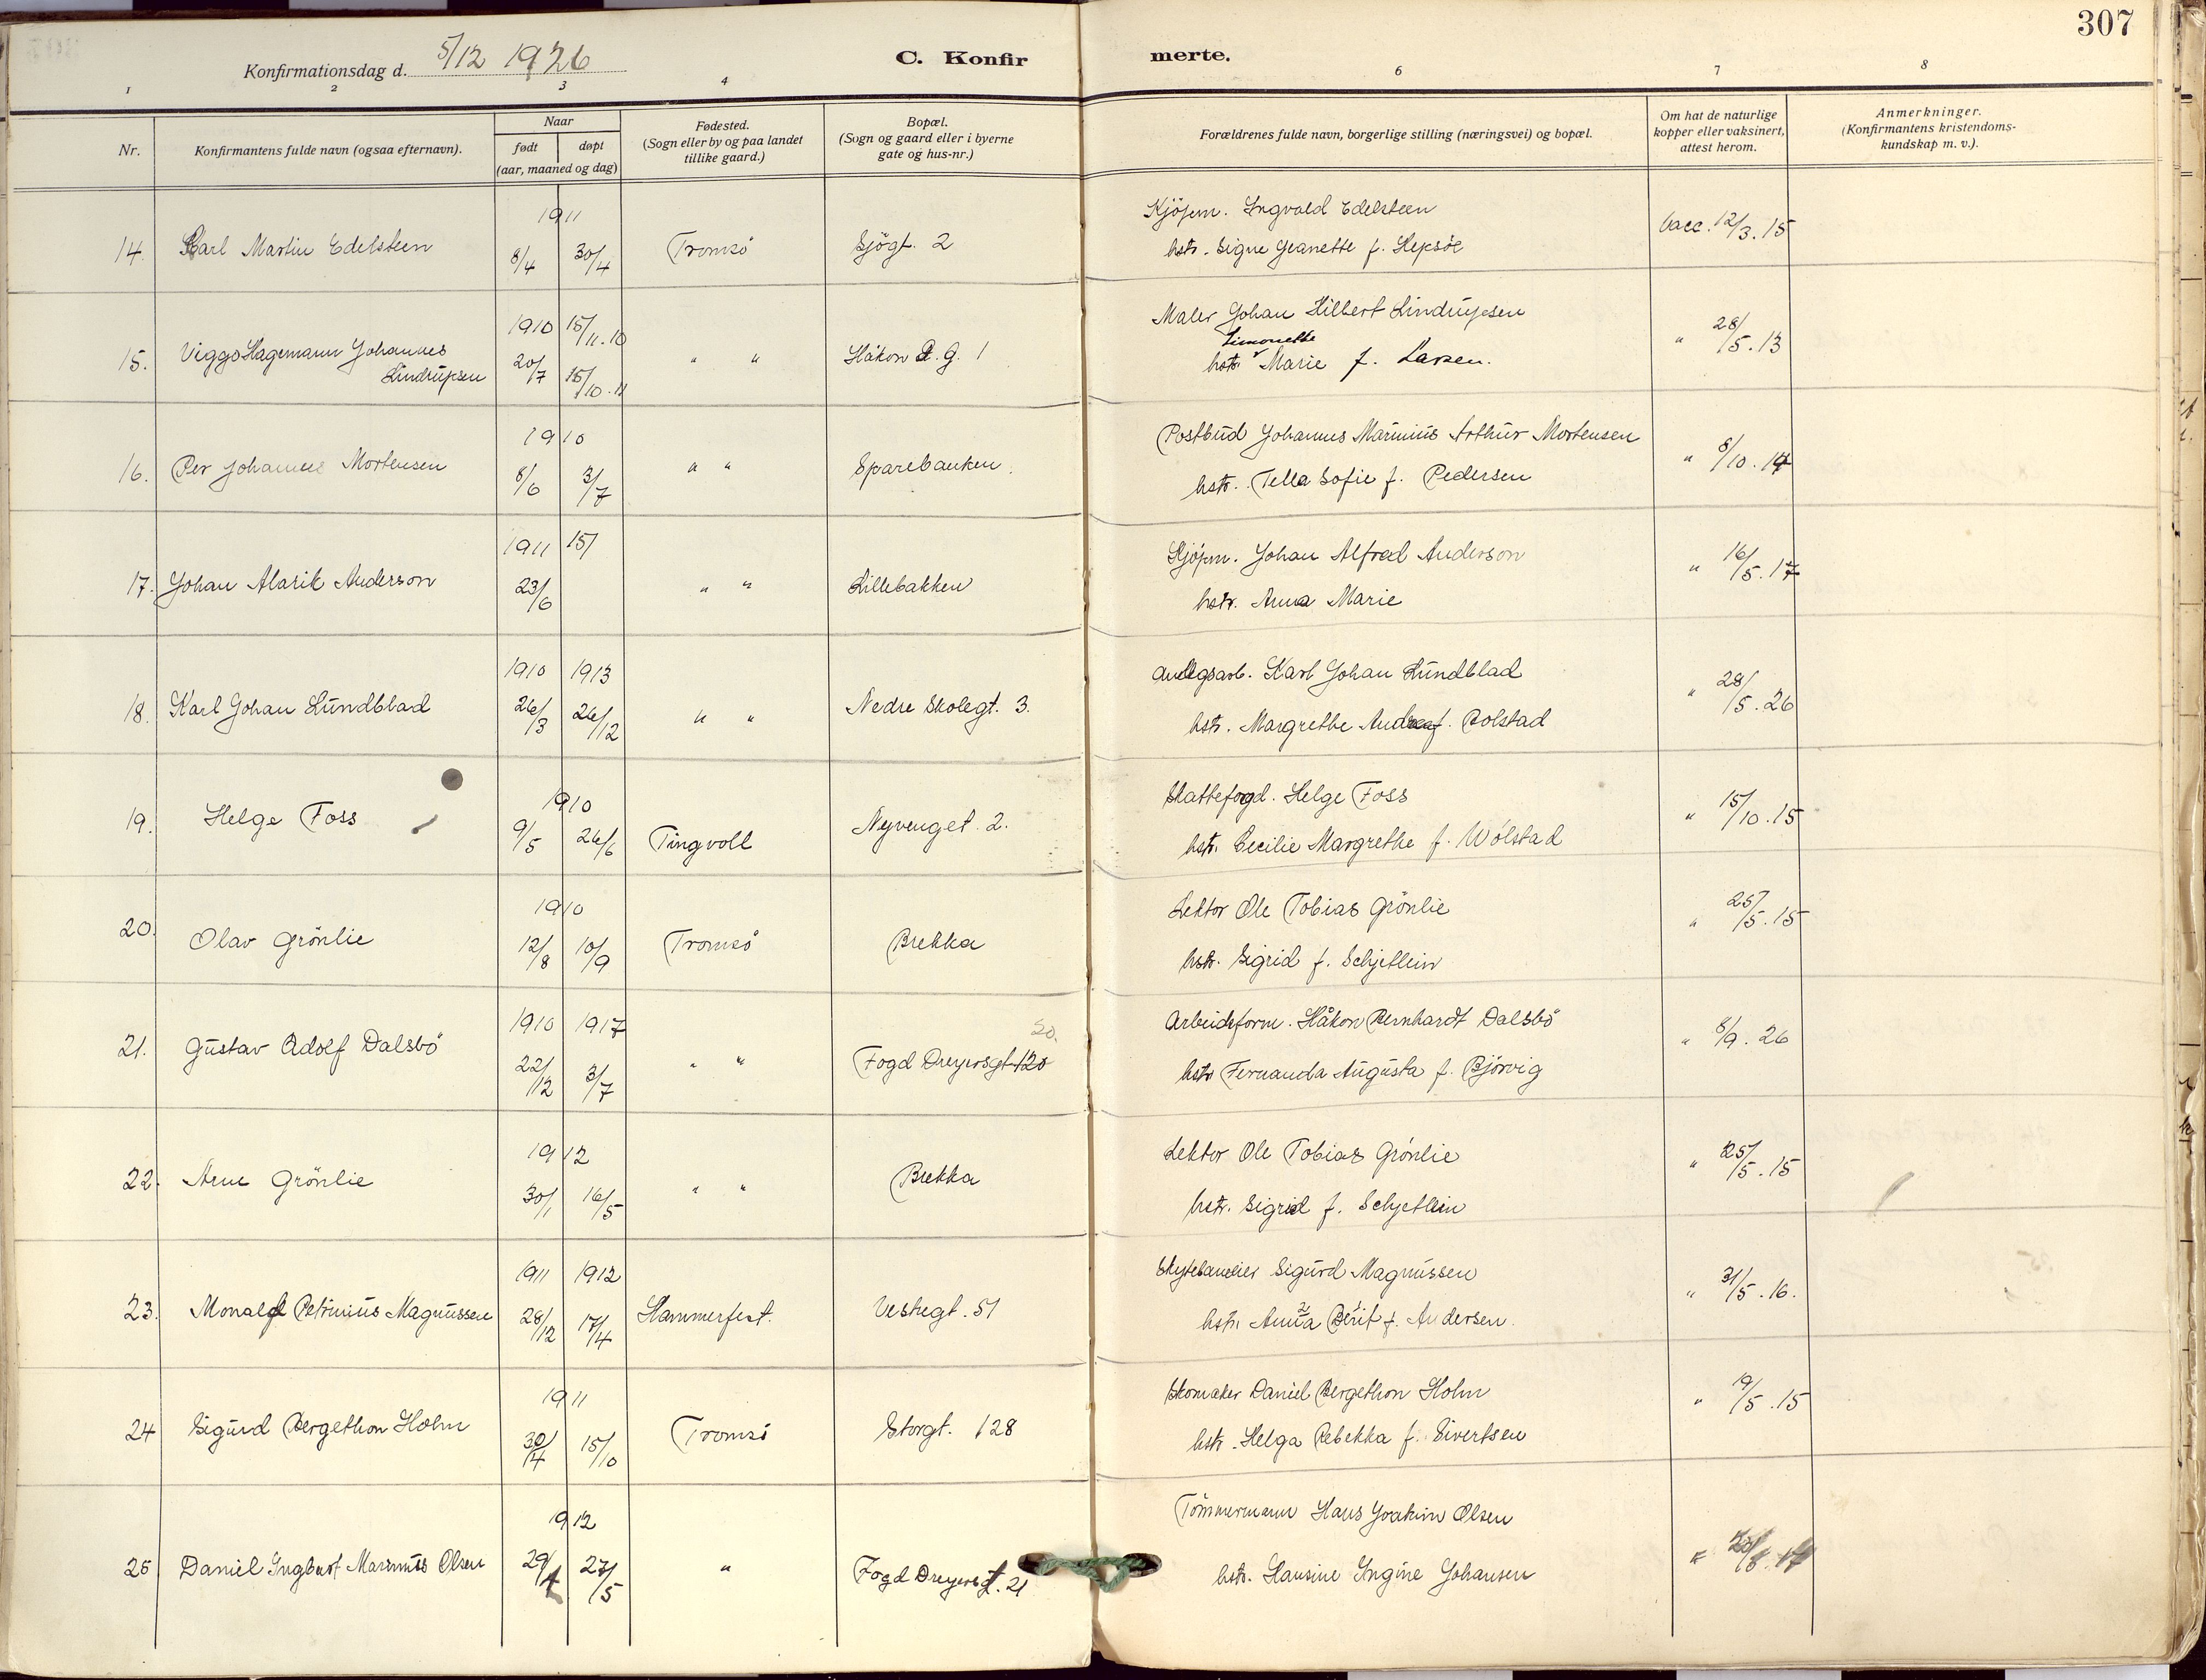 307
Konfirmationsdag d. 5/12 1926
C. Konfir merte.
1 2 3 4 6 7 8
Nr.
Konfirmantens fulde navn (ogsaa efternavn).
Naar
født døpt
(aar, maaned og dag)
Fødested.
(Sogn eller by og paa landet
tillike gaard.)
Bopæl.
(Sogn og gaard eller i byerne
gate og hus-nr.)
Forældrenes fulde navn, borgerlige stilling (næringsvei) og bopæl.
Om hat de naturlige
kopper eller vaksinert,
attest herom.
Anmerkninger.
(Konfirmantens kristendoms-
kundskap m. v.).
1911
14. Karl Martin Edelsteen 8/4 30/4 Tromsö Sjögt. 2
Kjöpm. Ingvald Edelsteen
hstr. Signe Jeanette f. Hepsöe
vacc. 12/3. 15
1910 15/11.10
15. Viggo Hagemann Johannes
Lindrupsen
20/7 15/10.11 " " Håkon d. G. 1
Maler Johan Hilbert Lindrupsen
Limonette
hstr. Marie f. Larsen.
" 28/5. 13
1910
16. Per Johannes Mortensen 8/6 3/7 " " Sparebanken.
Postbud Johannes Marinius Arthur Mortensen
hstr. Tella Sofie f. Pedersen
" 8/10. 14
1911 15/
17. Johan Alarik Anderson 23/6 " " Lillebakken
Kjöpm. Johan Alfred Anderson
hstr. Anna Marie
" 16/5. 17
1910 1913
18. Karl Johan Lundblad 26/3 26/12 " " Nedre Skolegt. 3.
Anlegsarb. Karl Johan Lundblad
hstr. Margrethe Andrea f. Bolstad
" 28/5. 26
1910
19. Helge Foss 9/5 26/6 Tingvoll Nyvenget. 2.
Skattefogd. Helge Foss
hstr. Cecilie Margrethe f. Wölstad
" 15/10. 15
1910
20. Olav Grönlie 12/8 10/9 Tromsö Brekka
Lektor Ole Tobias Grönlie
hstr. Sigrid f. Schjetlein
" 25/5. 15
1910 1917
20.
21. Gustav Adolf Dalsbö 22/12 3/7 " " Fogd Dreyersgt 120
Arbeidsform. Håkon Bernhardt Dalsbö
hstr Fernanda Augusta f. Björvig
" 8/9. 26
1912
22. Arne Grönlie 30/1 16/5 " " Brekka
Lektor Ole Tobias Grönlie
hstr. Sigrid f. Schjetlein
" 25/5. 15
1911 1912
23. Monalf Petrinius Magnussen 28/12 17/4 Hammerfest. Vestregt. 51
Sigurd Magnussen
hstr. Anna Berit f. Andersen.
" 31/5. 16.
1911
24 Sigurd Bergethon Holm 30/4 15/10 Tromsö Storgt. 128
Skomaker Daniel Bergethon Holm
hstr. Helga Rebekka f. Sivertsen
" 19/5. 15
1912
25 Daniel Ingbert Marinius Olsen 29/4 27/5 " Fogd Dreyersgt. 21
Tömmermann Hans Joakim Olsen
hstr. Hansine Ingine Johansen